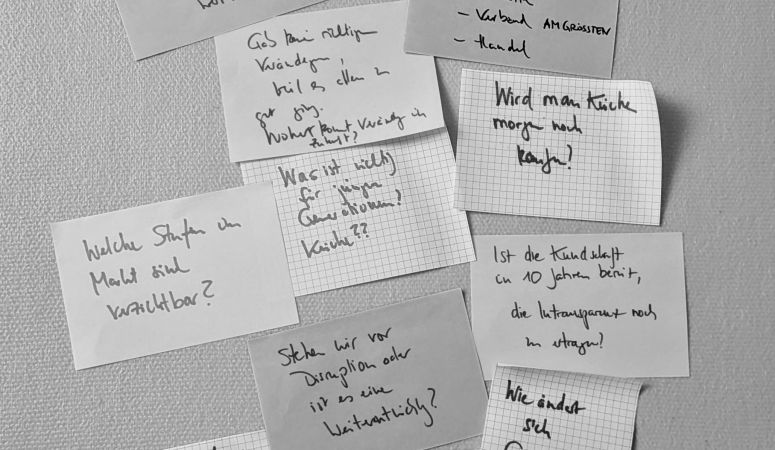 - Verband AM GRÖSSTEN
- Handel
Gab keine richtigen
Veränderungen,
weil es allen zu
gut ging.
Woher kommt Veränderung in
Zukunft?
Wird man Küche
morgen noch
kaufen?
Was ist wichtig
für jüngere
Generationen?
Küche??
Welche Stufen im
Markt sind
verzichtbar?
Ist die Kundschaft
in 10 Jahren bereit,
die Intransparenz noch
zu ertragen?
Stehen wir vor
Disruption oder
ist es eine
Weiterentwicklg?
Wie ändert
sich